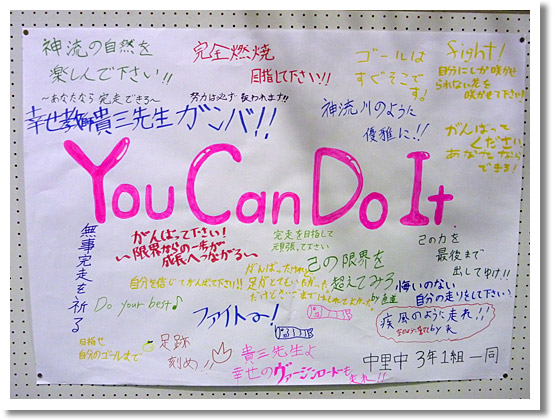 神流の自然を
楽しんで下さい!!
完全燃焼
目指して下さい!!
ゴールは
すぐそこで
す!
fight!
自分にしか咲かせ
られない花を
咲かせて下さい!
~あなたなら完走できる~
努力は必ず報われます!!
幸せ教師貴三先生ガンバ!!
神流川のように
優雅に!!
がんばって
ください
あなたなら
できる!
You Can Do It
無事完走を祈る
がんばって下さい!
~限界からの一歩が
成長へつながる~
完走を目指して
頑張って下さい
己の力を
最後まで
出してゆけ!!
自分を信じてがんばって下さい!!
己の限界を
超えてみろ
悔いのない
自分の走りをして下さい!
Do your best♪
ファイトォ!
疾風のように走れ!!
目指せ
自分のゴールまで
足跡
刻め!!
貴三先生よ
幸せのヴァージンロードも
走れー!!
中里中 3年1組 一同